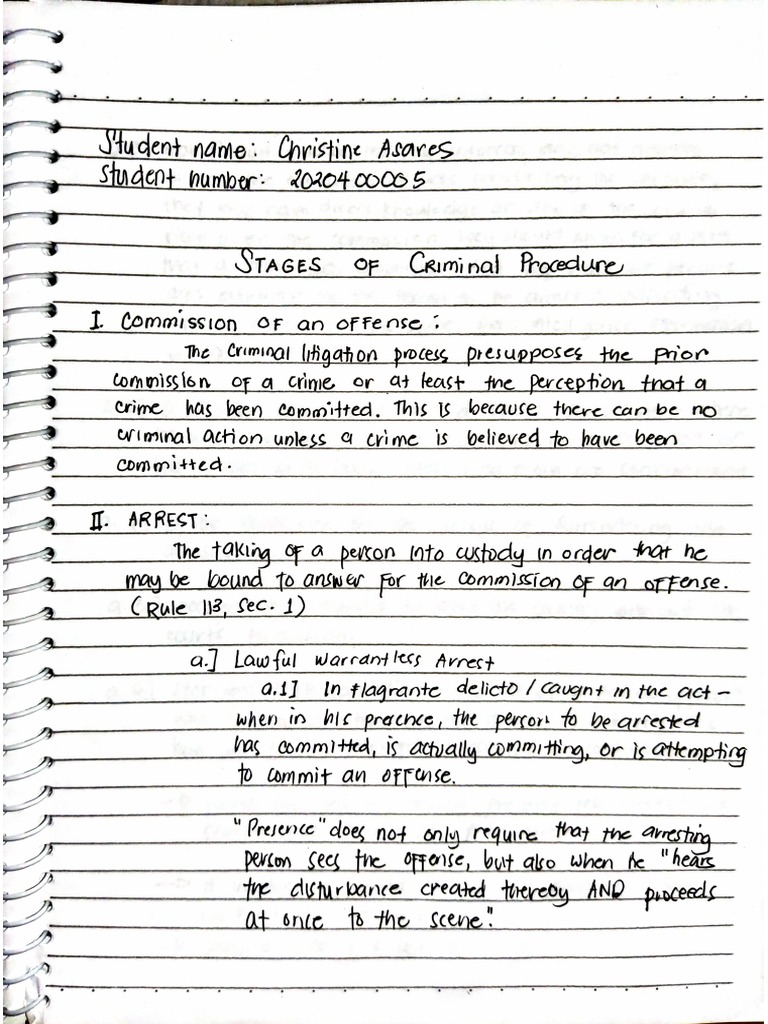 Student name: Christine Asares
Student number: 2020400005
STAGES OF Criminal Procedure
I. Commission of an offense:
The criminal litigation process presupposes the prior
commission of a crime or at least the perception that a
crime has been committed. This is because there can be no
criminal action unless a crime is believed to have been
committed.
II. ARREST:
The taking of a person into custody in order that he
may be bound to answer for the commission of an offense.
(Rule 113, sec. 1)
a.] Lawful Warrantless Arrest
a.1] In flagrante delicto / caught in the act -
when in his presence, the person to be arrested
has committed, is actually committing, or is attempting
to commit an offense.
"Presence" does not only require that the arresting
person sees the offense, but also when he "hears
the disturbance created thereby AND proceeds
at once to the scene."